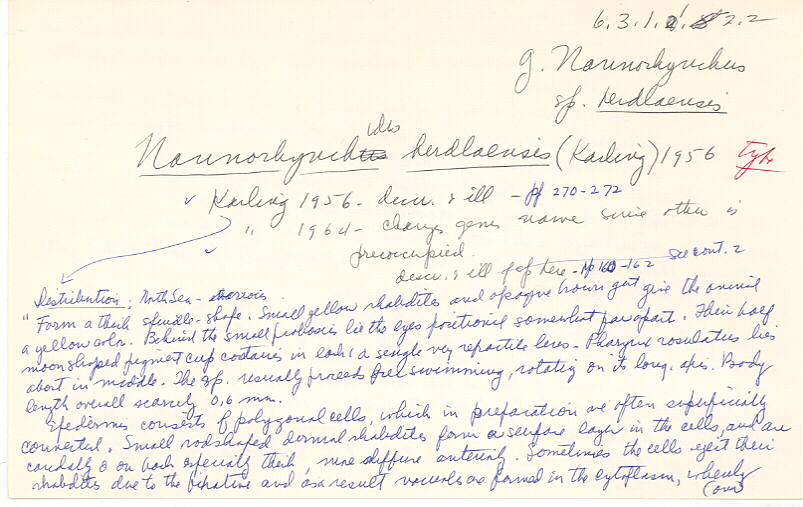 6.3.1.2.2
g. Nannorhynchus
sp. herdlaensis
ides
Nannorhynchus herdlaensis (Karling) 1956 type
✓ Karling 1956 - descr. & ill - pp 270-272
" 1964 - change genus name since other is
✓ preoccupied.
descr. & ill of sp here - pp 160-162 see cont. 2
Distribution: North Sea -
" Form a thick spindle-shape. Small yellow rhabdites and opaque brown gut give the animal
a yellow color. Behind the small proboscis lie the eyes positioned somewhat far apart. Their half
moon shaped pigment cup contains in each a single very refractile lens. Pharynx rosulatus lies
about in middle. The sp. usually proceeds free swimming, rotating on its long. axis. Body
length overall scarcely 0,6 mm.
Epidermis consists of polygonal cells, which in preparation are often superficially
connected. Small rodshaped dermal rhabdites form a surface layer in the cells, and are
caudally & on back especially thick, more diffuse anteriorly. Sometimes the cells eject their
rhabdites due to the fixative and as a result vacuoles are formed in the cytoplasm, whereby
(over)